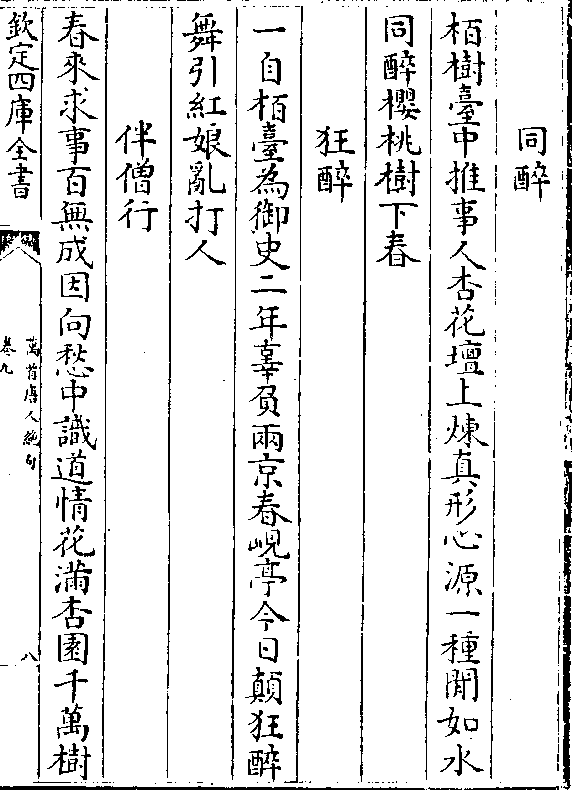 同醉
栢樹臺中推事人杏花壇上煉真形心源一種閒如水
同醉櫻桃樹下春
狂醉
一自栢臺為御史二年辜負兩京春峴亭今日顛狂醉
舞引紅娘亂打人
伴僧行
春來求事百無成因向愁中識道情花滿杏園千萬樹
欽定四庫全書
萬首唐人絶句
卷九
八